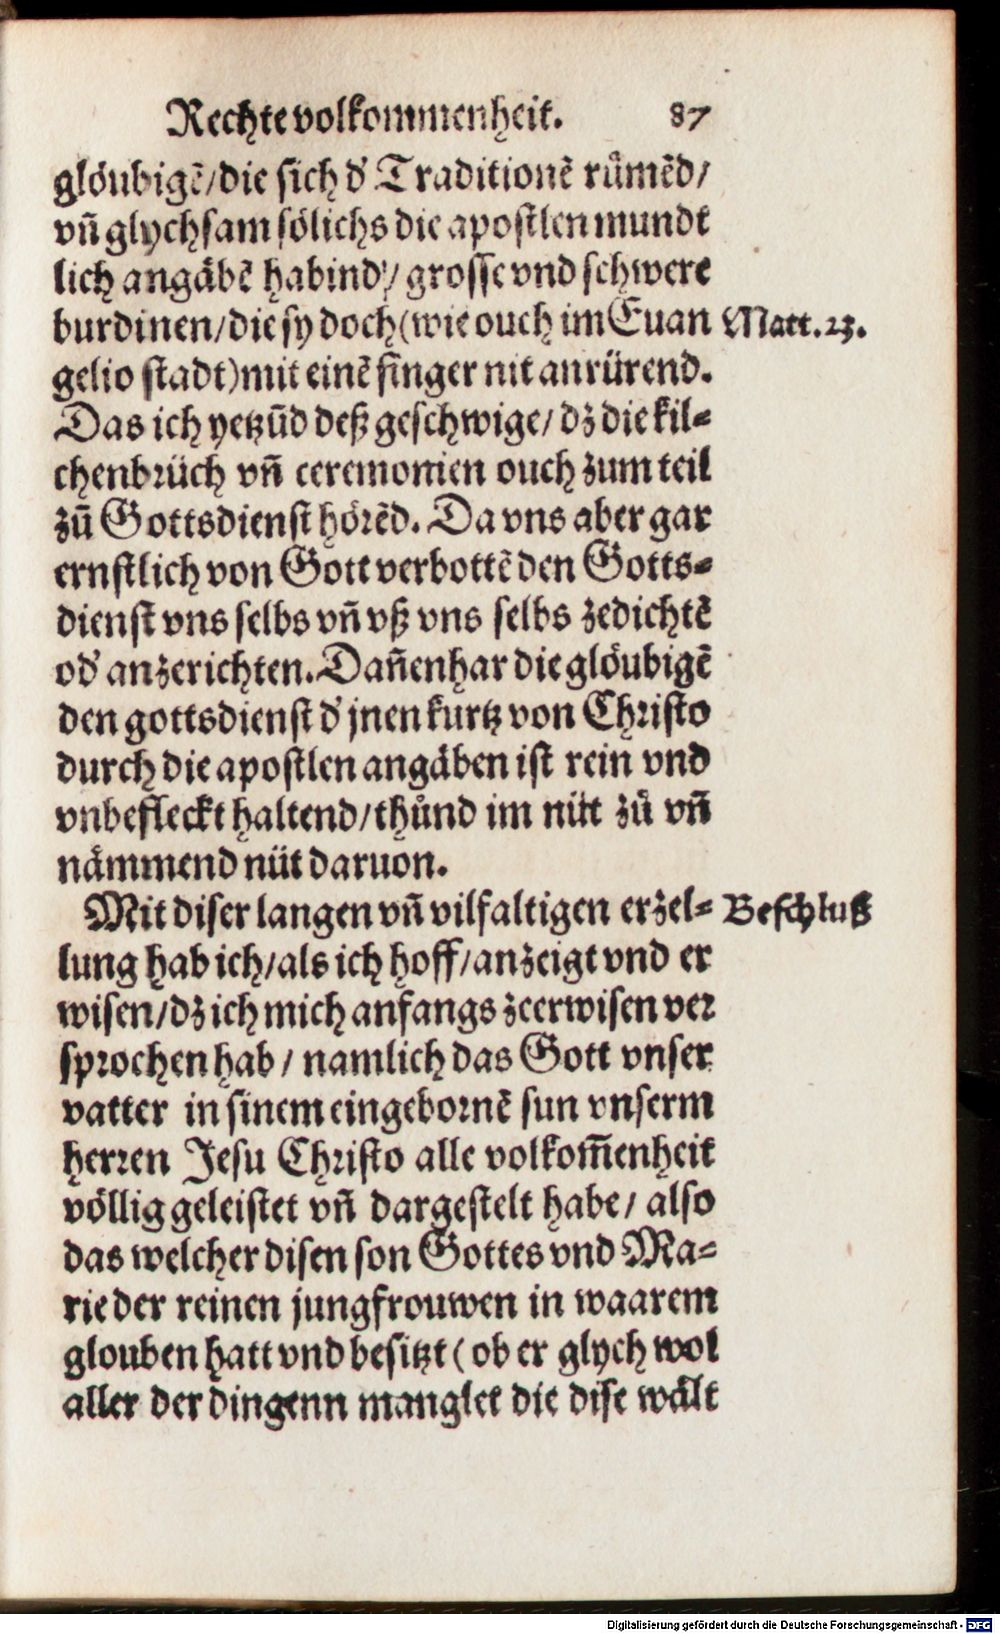 Rechte volkommenheit. 87
glöubigẽ/die sich d' Traditionẽ růmẽd/
vñ glychsam sölichs die apostlen mundt
lich angäbẽ habind'/ grosse vnd schwere
burdinen/die sy doch (wie ouch im Euan Matt. 23.
gelio stadt) mit einẽ finger nit anrürend.
Das ich yetzũd deß geschwige/ dz die kil-
chenbrüch vñ ceremonien ouch zum teil
zũ Gottsdienst hörẽd. Da vns aber gar
ernstlich von Gott verbottẽ den Gotts-
dienst vns selbs vñ vß vns selbs zedichtẽ
od' anzerichten. Dañenhar die glöubigẽ
den gottsdienst d' jnen kurtz von Christo
durch die apostlen angäben ist rein vnd
vnbefleckt haltend/thůnd im nüt zů vñ
nämmend nüt daruon.
Mit diser langen vñ vilfaltigen erzel- Beschluß
lung hab ich/als ich hoff/anzeigt vnd er
wisen/dz ich mich anfangs zeerwisen ver
sprochen hab / namlich das Gott vnser
vatter in sinem eingebornẽ sun vnserm
herren Jesu Christo alle volkom̃enheit
völlig geleistet vñ dargestelt habe/ also
das welcher disen son Gottes vnd Ma-
rie der reinen jungfrouwen in waarem
glouben hatt vnd besitzt (ob er glych wol
aller der dingenn manglet die dise wält
Digitalisierung gefördert durch die Deutsche Forschungsgemeinschaft - DFG